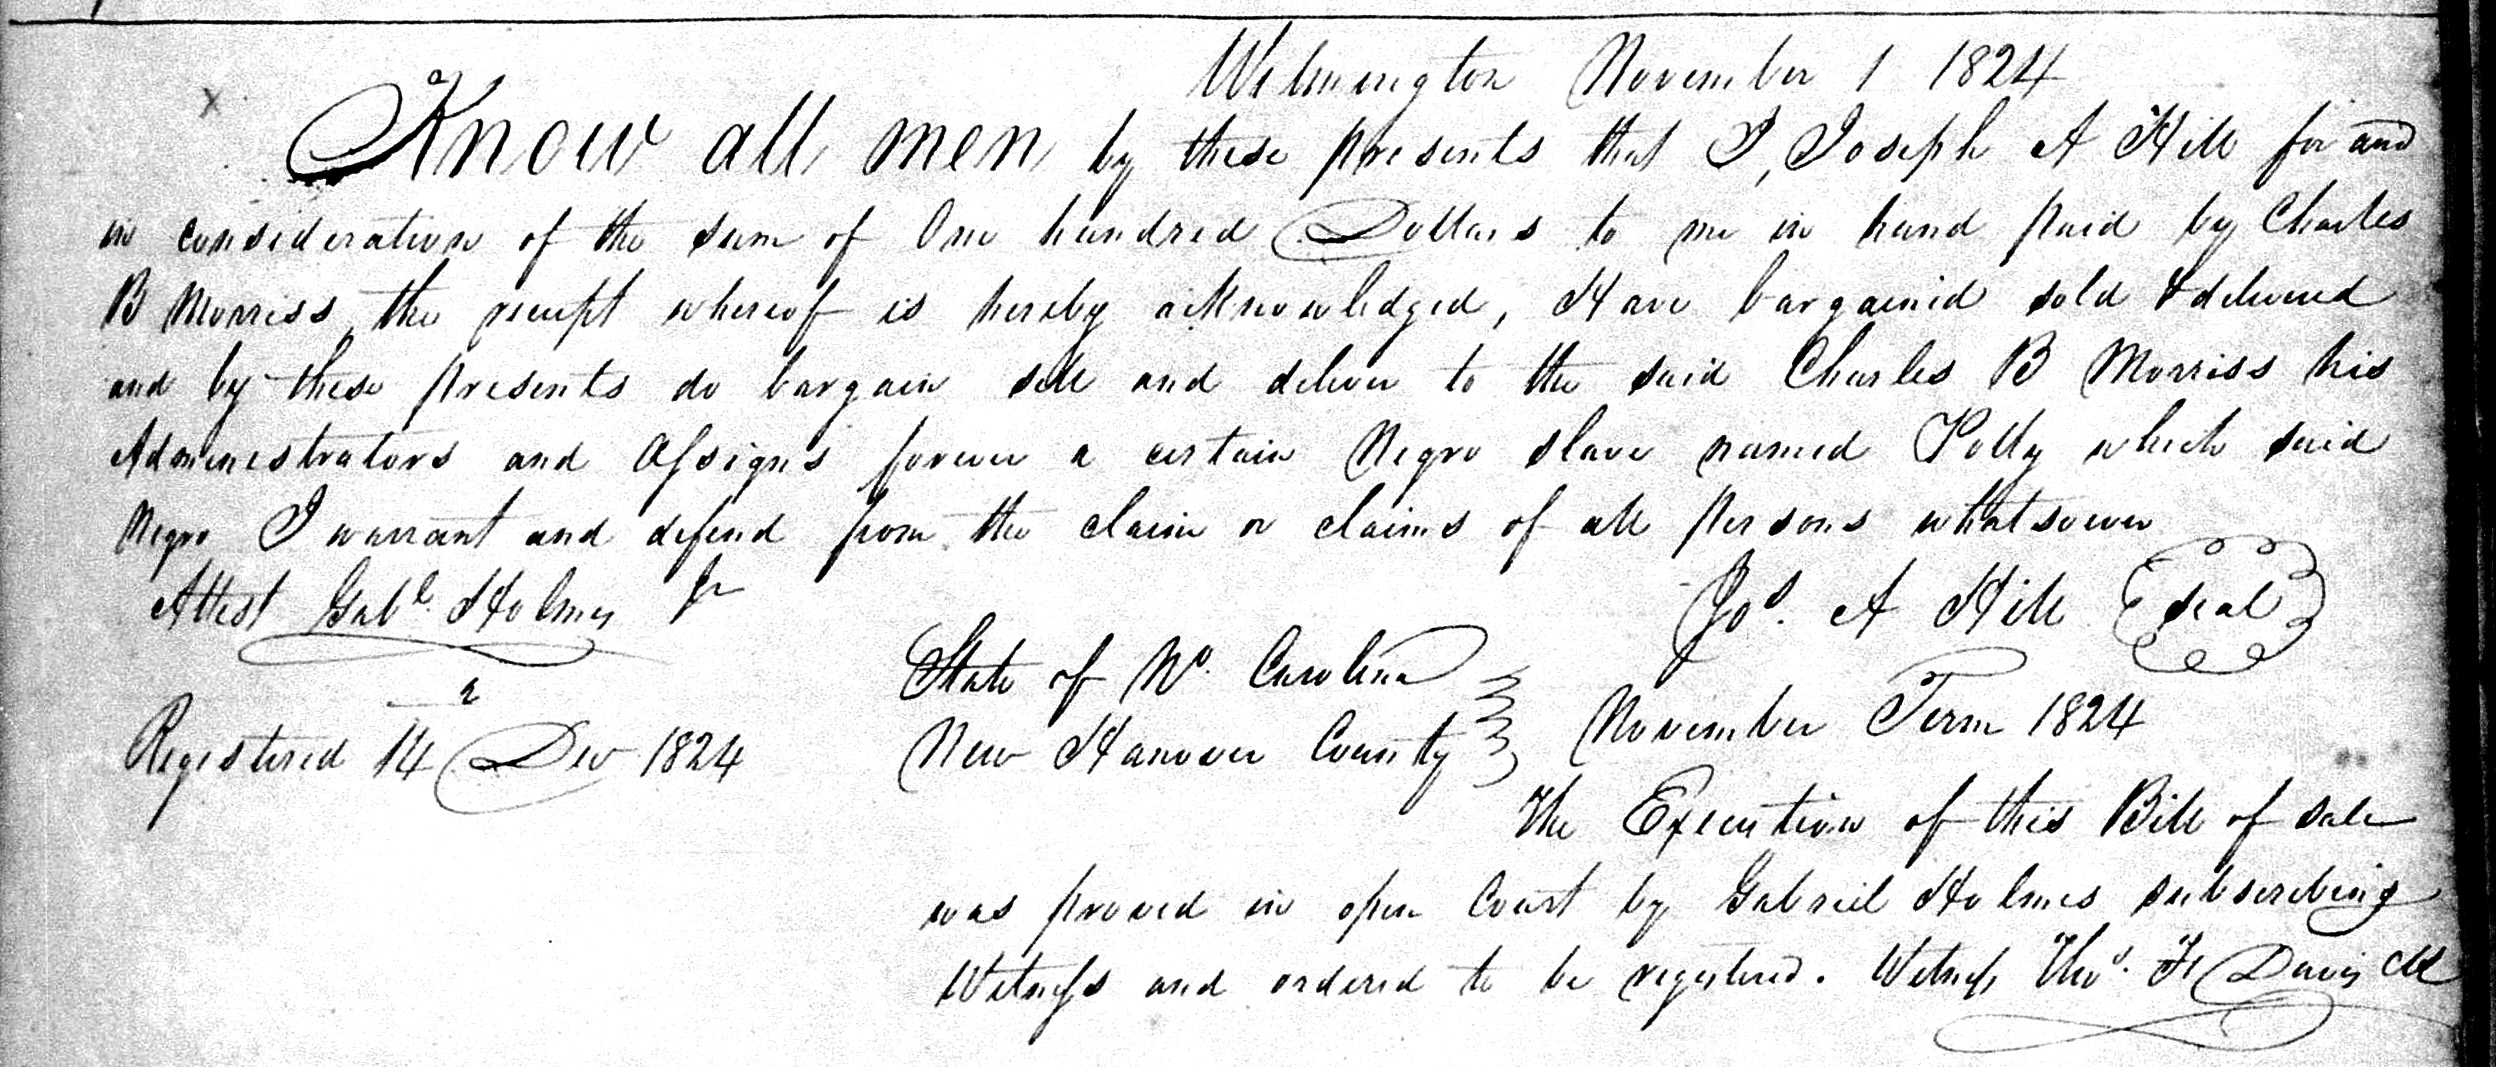 Wilmington November 1 1824
Know all men by these presents that I, Joseph A Hill for and
in consideration of the sum of One hundred Dollars to me in hand paid by Charles
B Morriss, the receipt whereof is hereby acknowledged, Have bargained sold & delivered
and by these presents do bargain sell and deliver to the said Charles B Morriss his
Administrators and Assigns forever a certain Negro slave named Polly which said
Negro I warrant and defend from the claim or claims of all persons whatsoever
Attest Gabl. Holmes Jr
Jos. A Hill Seal
State of No. Carolina
New Hanover County
November Term 1824
Registered 14 Dec 1824
The Execution of this Bill of sale
was proved in open Court by Gabriel Holmes subscribing
Witness and ordered to be registered. Witness Thos. F Davis Clk